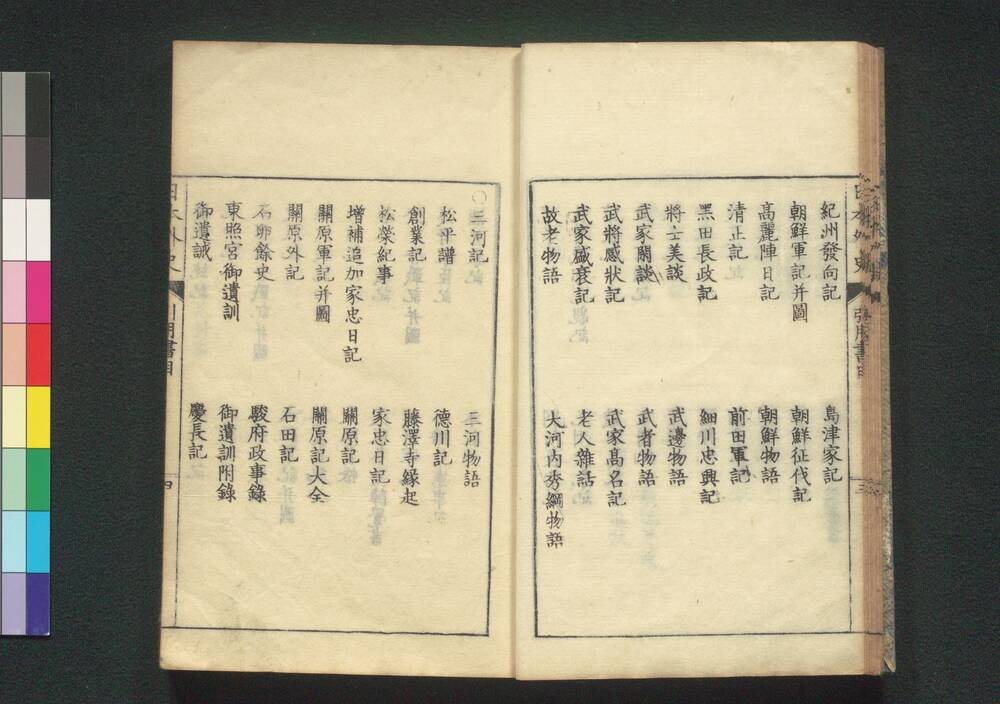 紀州發向記　島津家記
朝鮮軍記并圖　朝鮮征代記
高麗陣日記　朝鮮物語
清正記　前田軍記
黑田長政記　細川忠興記
將士美談　武邊物語
武家閑談　武者物語
武將感狀記　武家高名記
武家盛衰記　老人雜話
故老物語　大河内秀綱物語
〇三河記　三河物語
松平譜　德川記
創業記　藤澤寺縁起
松榮紀事　家忠日記
增補追加家忠日記　關原記
關原軍記并圖　關原記大全
關原外記　石田記
石卵餘史　駿府政事錄
東照宮御遺訓　御遺訓附錄
御遺誡　慶長記
日本外史　引用書目　四